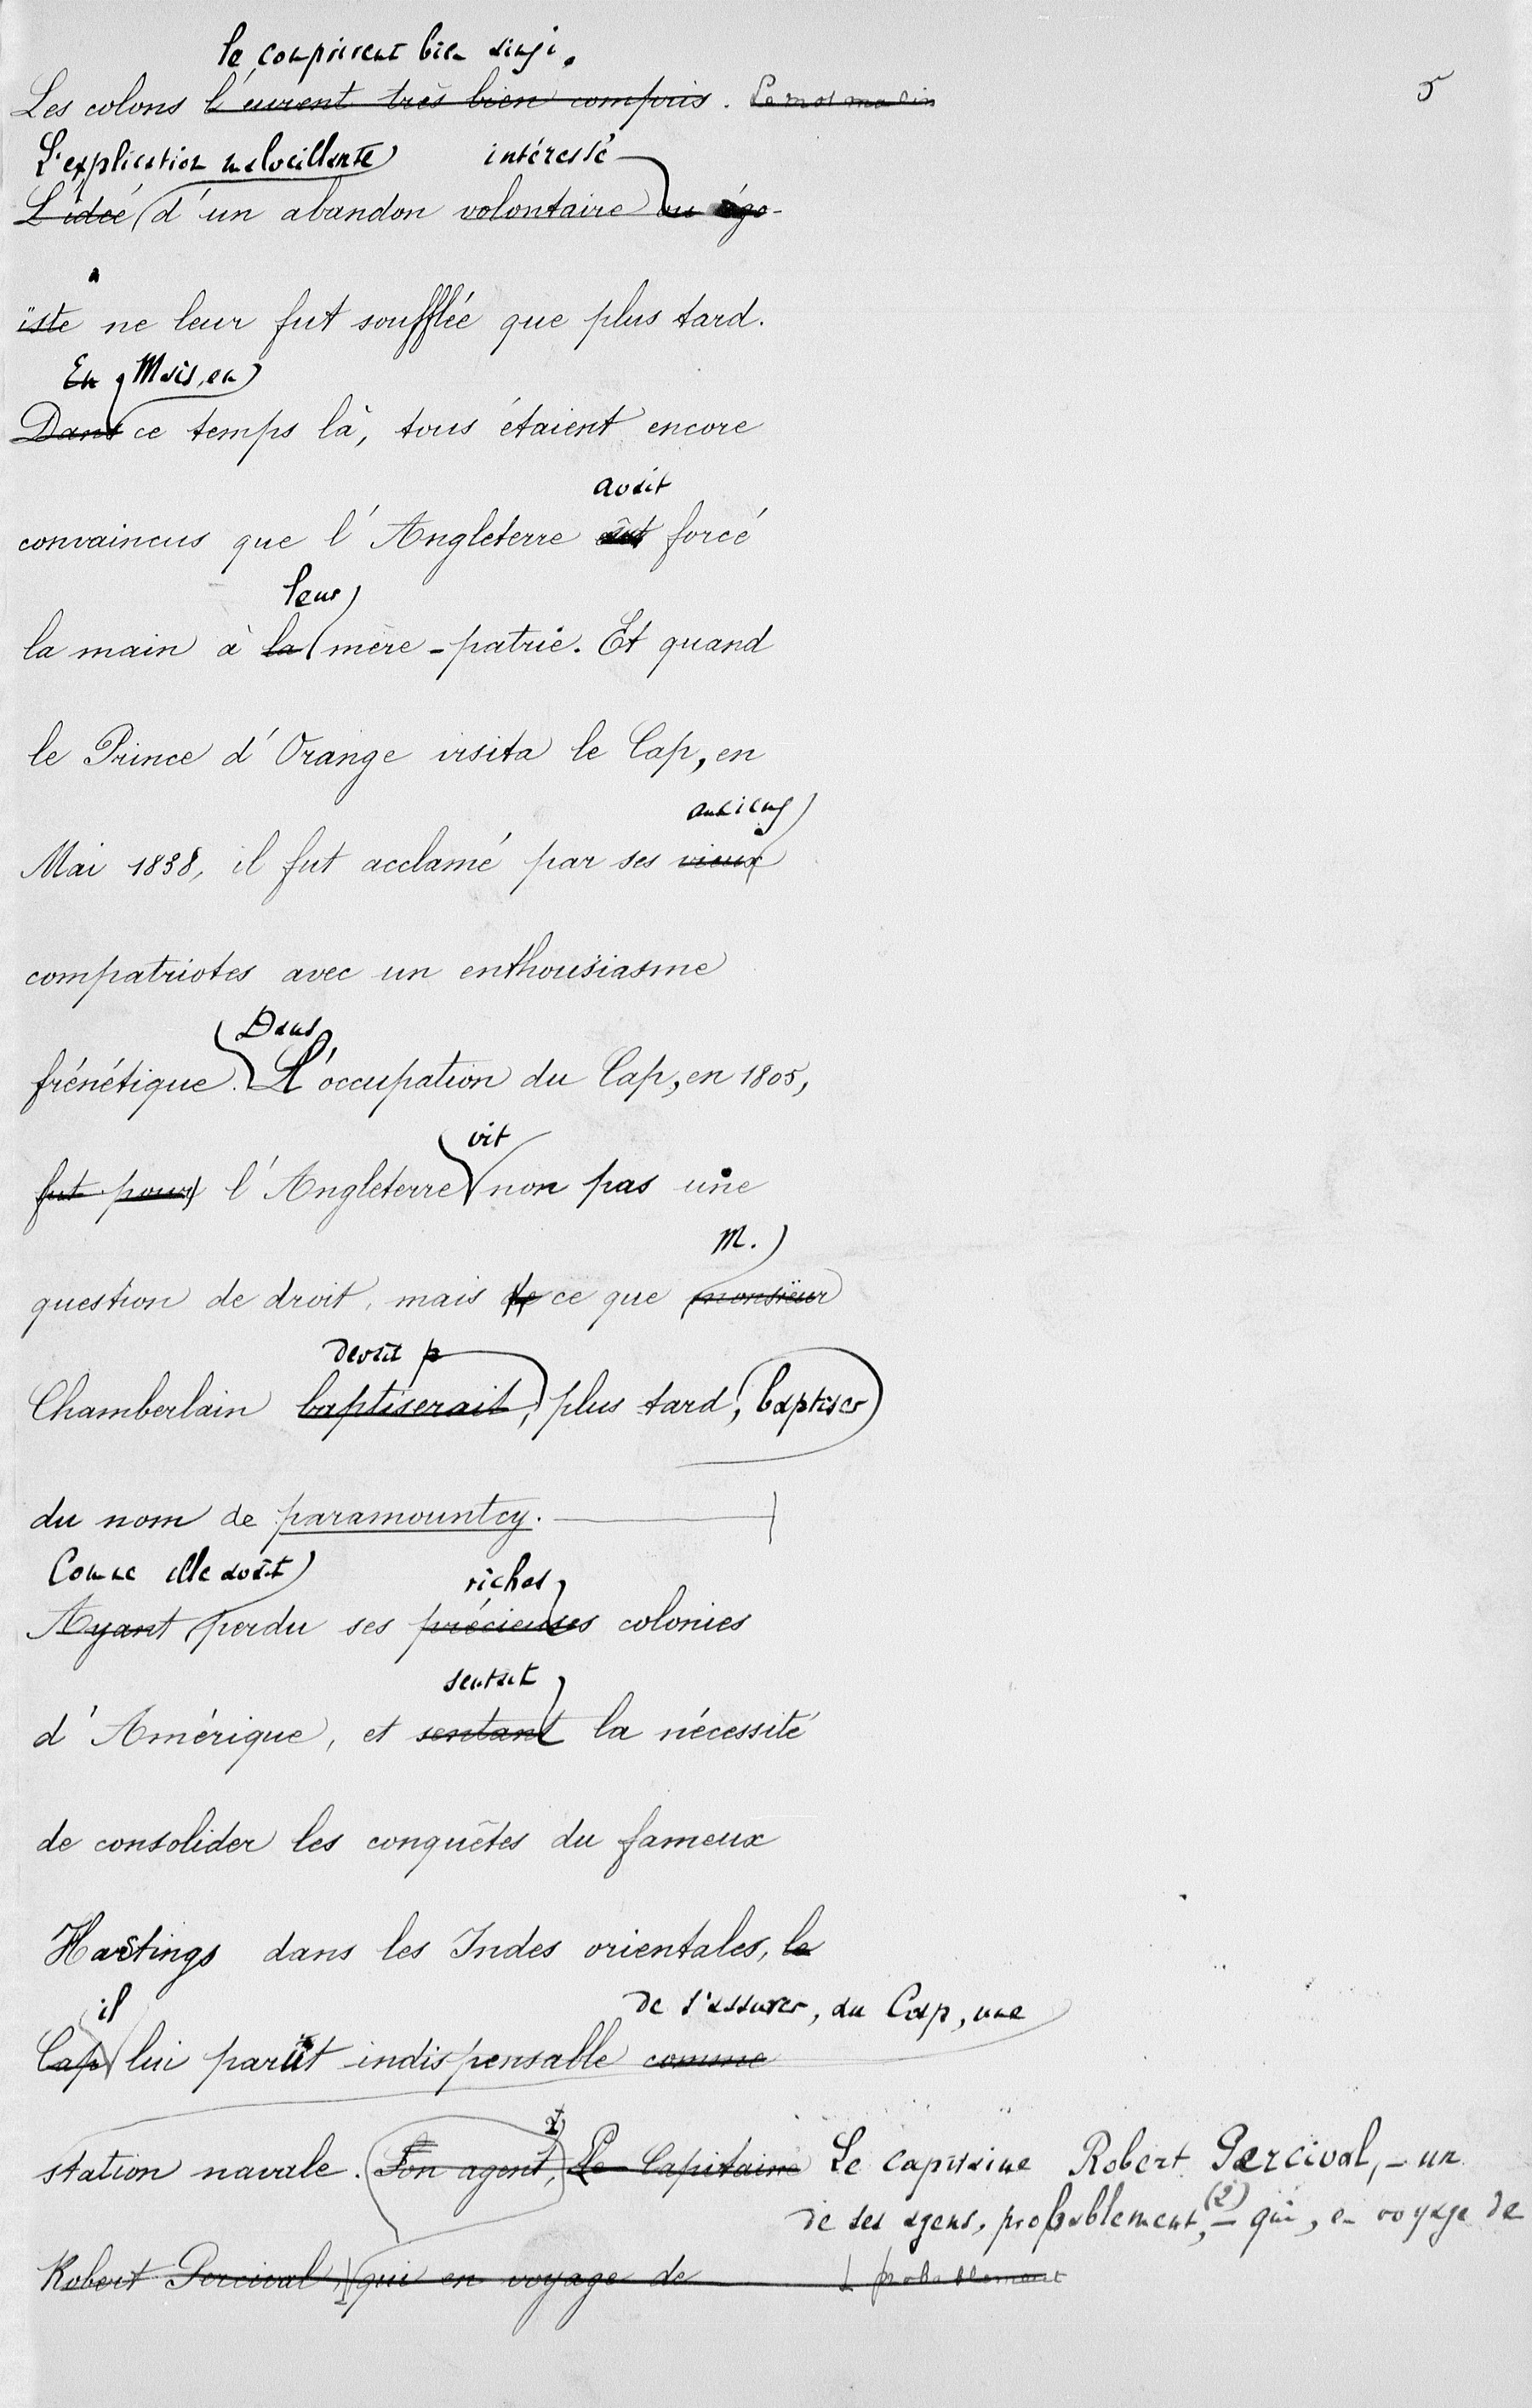 le comprirent bien ainsi.
Les colons l'eurent très bien compris. 5
L'explication malveillante intéressé
L'idée d'un abandon volontaire ou égo-
ïste ne leur fut soufflée que plus tard.
En Mais, en
Dans ce temps là, tous étaient encore
avait
convaincus que l'Angleterre eût forcé
leur
la main à la mère-patrie. Et quand
le Prince d'Orange visita le Cap, en
anciens
Mai 1838, il fut acclamé par ses vieux
compatriotes avec un enthousiasme
Dans
frénétique. L'occupation du Cap, en 1805,
vit
fut pour l'Angleterre non pas une
M.
question de droit, mais de ce que monsieur
devait
Chamberlain baptiserait, plus tard, baptiser
du nom de paramountcy.
Comme elle avait riches
Ayant perdu ses précieuses colonies
sentait
d'Amérique, et sentant la nécessité
de consolider les conquêtes du fameux
Hastings dans les Indes orientales, le
il de s'assurer, au Cap, une
Cap lui parût indispensable comme
station navale. Son agent, Le Capitaine Le capitaine Robert Percival, – un
de ses agens, probablement, (2) – qui, en voyage de
Robert Percival, qui en voyage de probablement